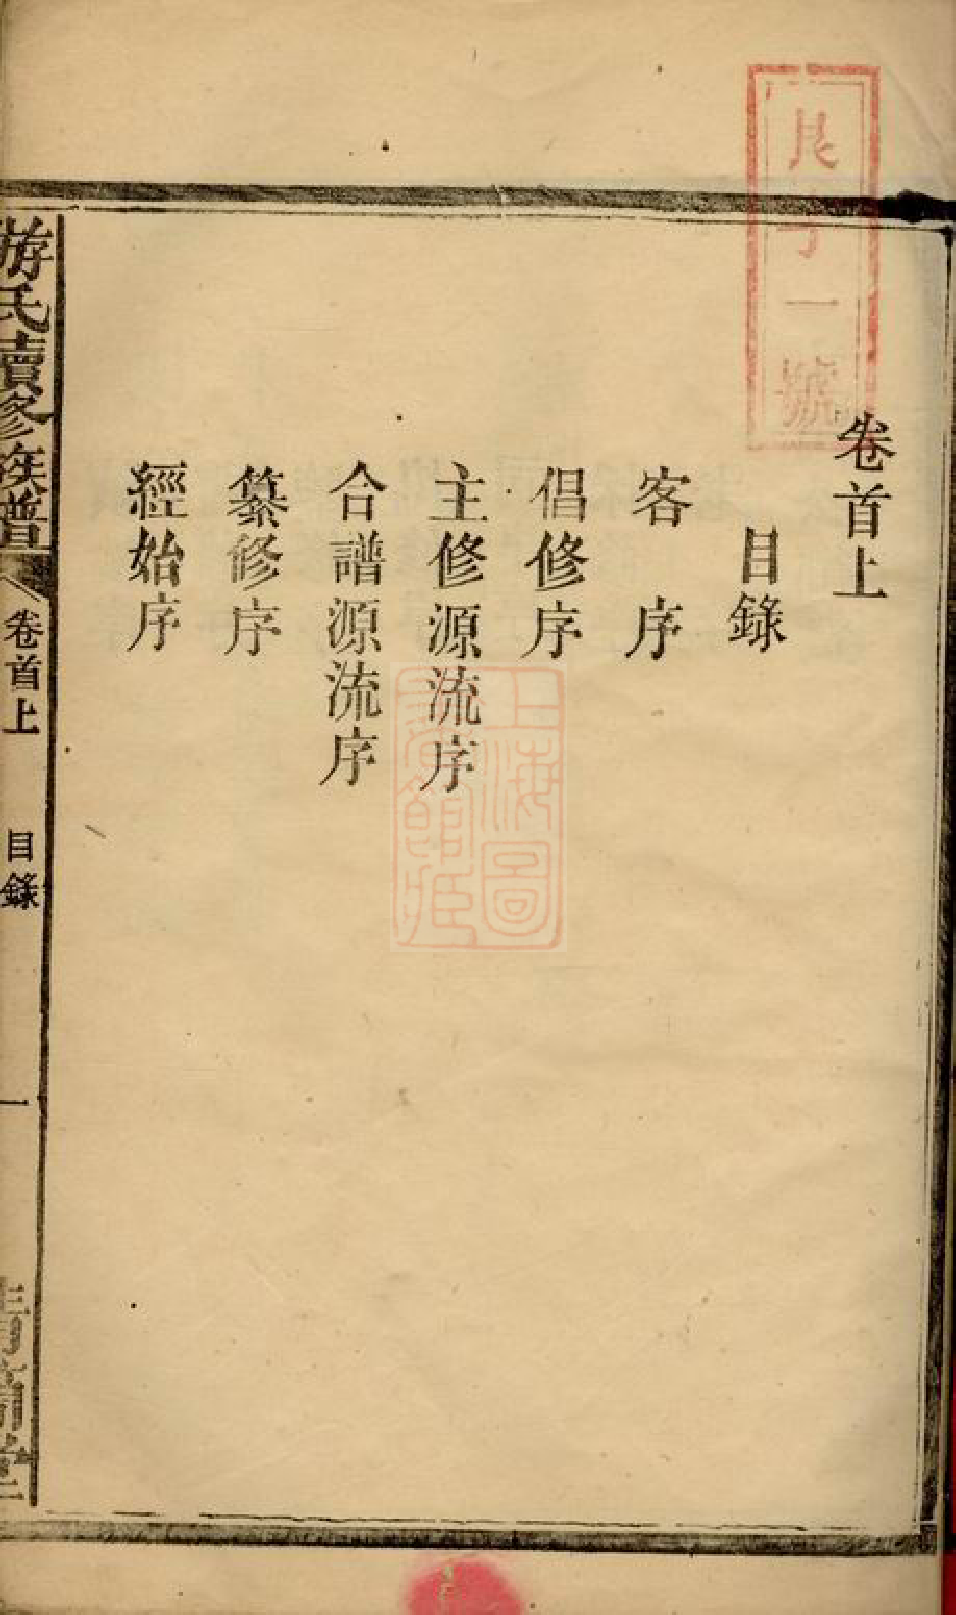 卷首上
目錄
客序
倡修序
主修源流序
合譜源流序
纂修序
經始序
游氏續修族譜
卷首上
目錄
一
一號
上海圖